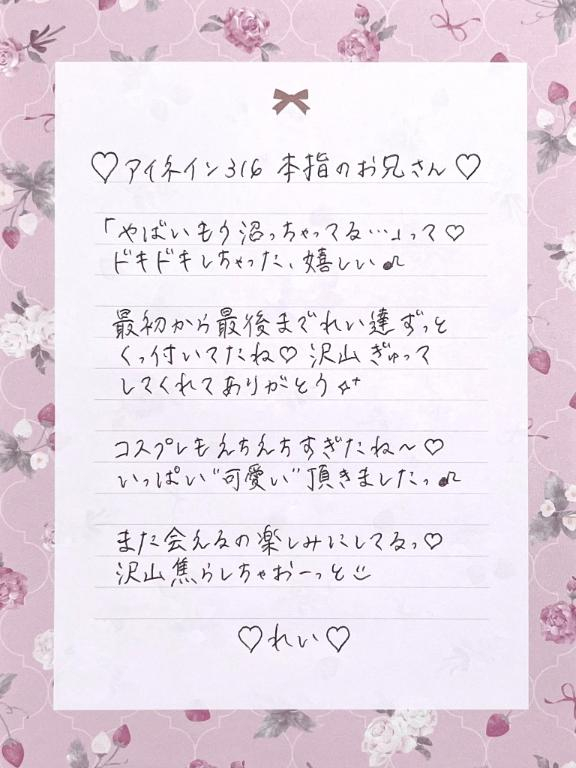 ♡アイネイン316 本指のお兄さん♡
「やばいもう沼っちゃってる…」って♡
ドキドキしちゃった、嬉しい♫
最初から最後までれい達ずっと
くっ付いてたね♡沢山ぎゅって
してくれてありがとう✨
コスプレもえちえちすぎたね〜♡
いっぱい"可愛い"頂きましたっ♫
また会えるの楽しみにしてるっ♡
沢山焦らしちゃおーっと☺
♡れい♡